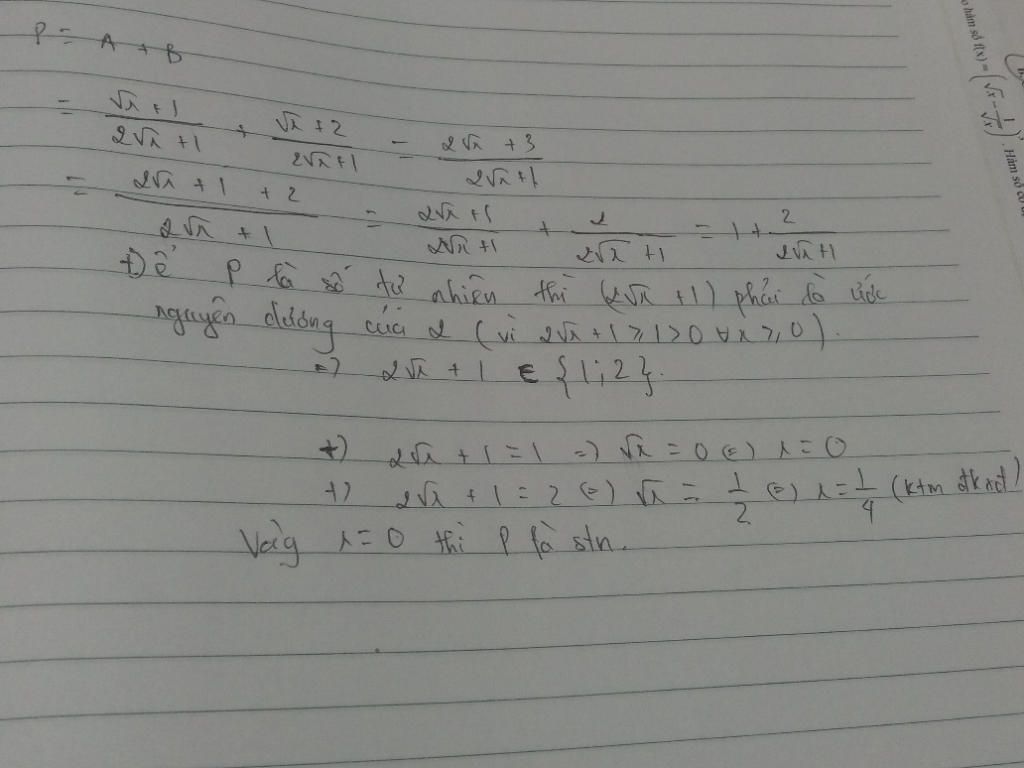 P = A + B
= \frac{√x + 1}{2√x + 1} + \frac{√x + 2}{2√x + 1} = \frac{2√x + 3}{2√x + 1}
= \frac{2√x + 1 + 2}{2√x + 1} = \frac{2√x + 1}{2√x + 1} + \frac{2}{2√x + 1} = 1 + \frac{2}{2√x + 1}
Để P là số tự nhiên thì (2√x + 1) phải là ước
nguyên dương của 2 (vì 2√x + 1 ≥ 1 > 0 ∀x ≥ 0).
=> 2√x + 1 ∈ {1; 2}.
+) 2√x + 1 = 1 => √x = 0 (=) x = 0
+) 2√x + 1 = 2 (=) √x = \frac{1}{2} (=) x = \frac{1}{4} (ktm đkxđ)
Vậy x = 0 thì P là stn.
hàm số f(x) = (√x - \frac{1}{√x})
. Hàm số có